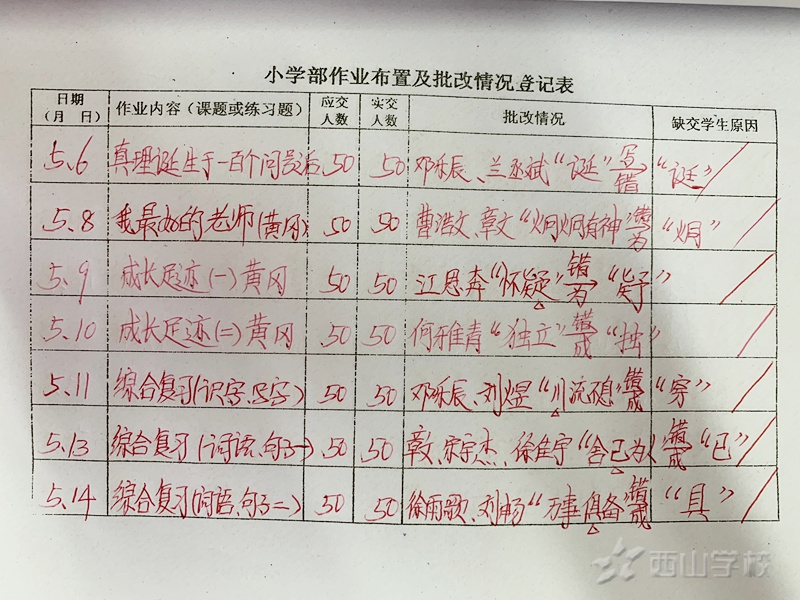 小学部作业布置及批改情况登记表
日期（月 日） 作业内容（课题或练习题） 应交人数 实交人数 批改情况 缺交学生原因
5.6 真理诞生于一百个问号后 50 50 邓乐辰、兰丞斌“诞”写错“诞” /
5.8 我最好的老师(黄冈) 50 50 曹浩文、章文“炯炯有神”错为“炯” /
5.9 成长足迹(一)黄冈 50 50 江思奔“怀疑”错为 /
5.10 成长足迹(二)黄冈 50 50 何雅青“独立”错成“拙” /
5.11 综合复习(识字、写字) 50 50 邓乐辰、刘煜“川流不息”错成“穿” /
5.13 综合复习(词语、句子一) 50 50 章文、宋宇杰、徐佳宇“舍己为人”错成“已” /
5.14 综合复习(词语、句子二) 50 50 徐雨歌、刘畅“万事俱备”错成“具” /
西山学校